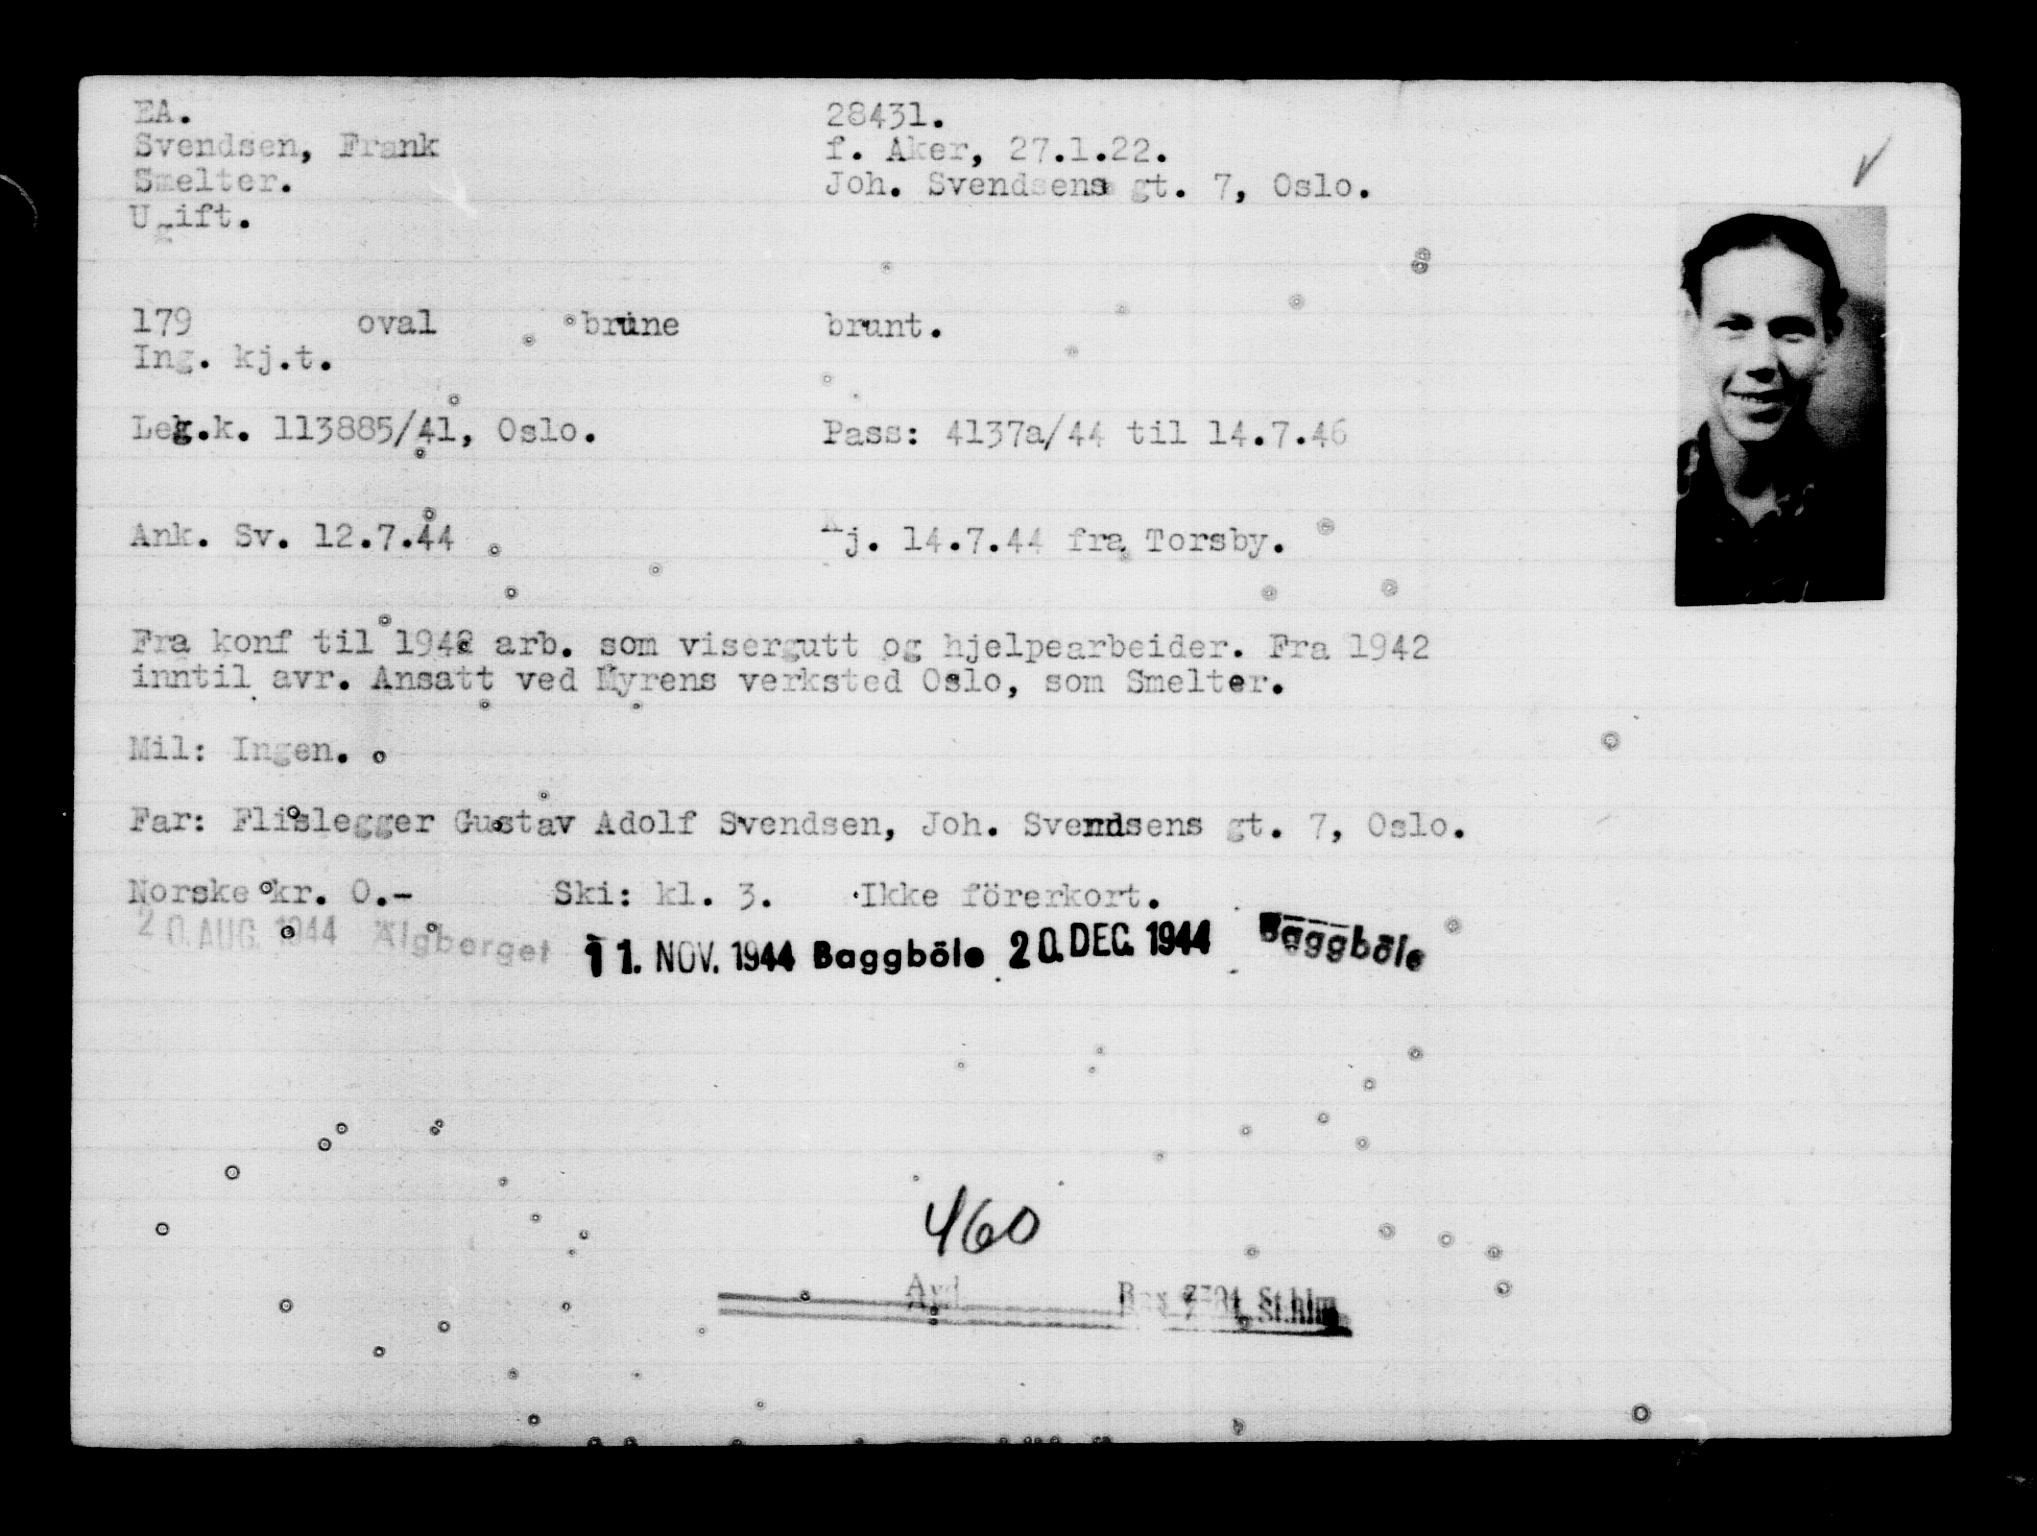 EA. 28431.
Svendsen, Frank f. Aker, 27.1.22.
Smelter. Joh. Svendsens gt. 7, Oslo.
Ugift.
179 oval brune brunt.
Ing. kj.t.
Leg.k. 113885/41, Oslo. Pass: 4137a/44 til 14.7.46
Ank. Sv. 12.7.44 Kj. 14.7.44 fra Torsby.
Fra konf til 1942 arb. som visergutt og hjelpearbeider. Fra 1942
inntil avr. Ansatt ved Myrens verksted Oslo, som Smelter.
Mil: Ingen.
Far: Flislegger Gustav Adolf Svendsen, Joh. Svendsens gt. 7, Oslo.
Norske kr. 0.- Ski: kl. 3. Ikke förerkort.
20. AUG. 1944 Älgberget 11. NOV. 1944 Baggböle 20. DEC. 1944 Baggböle
460
St.hlm